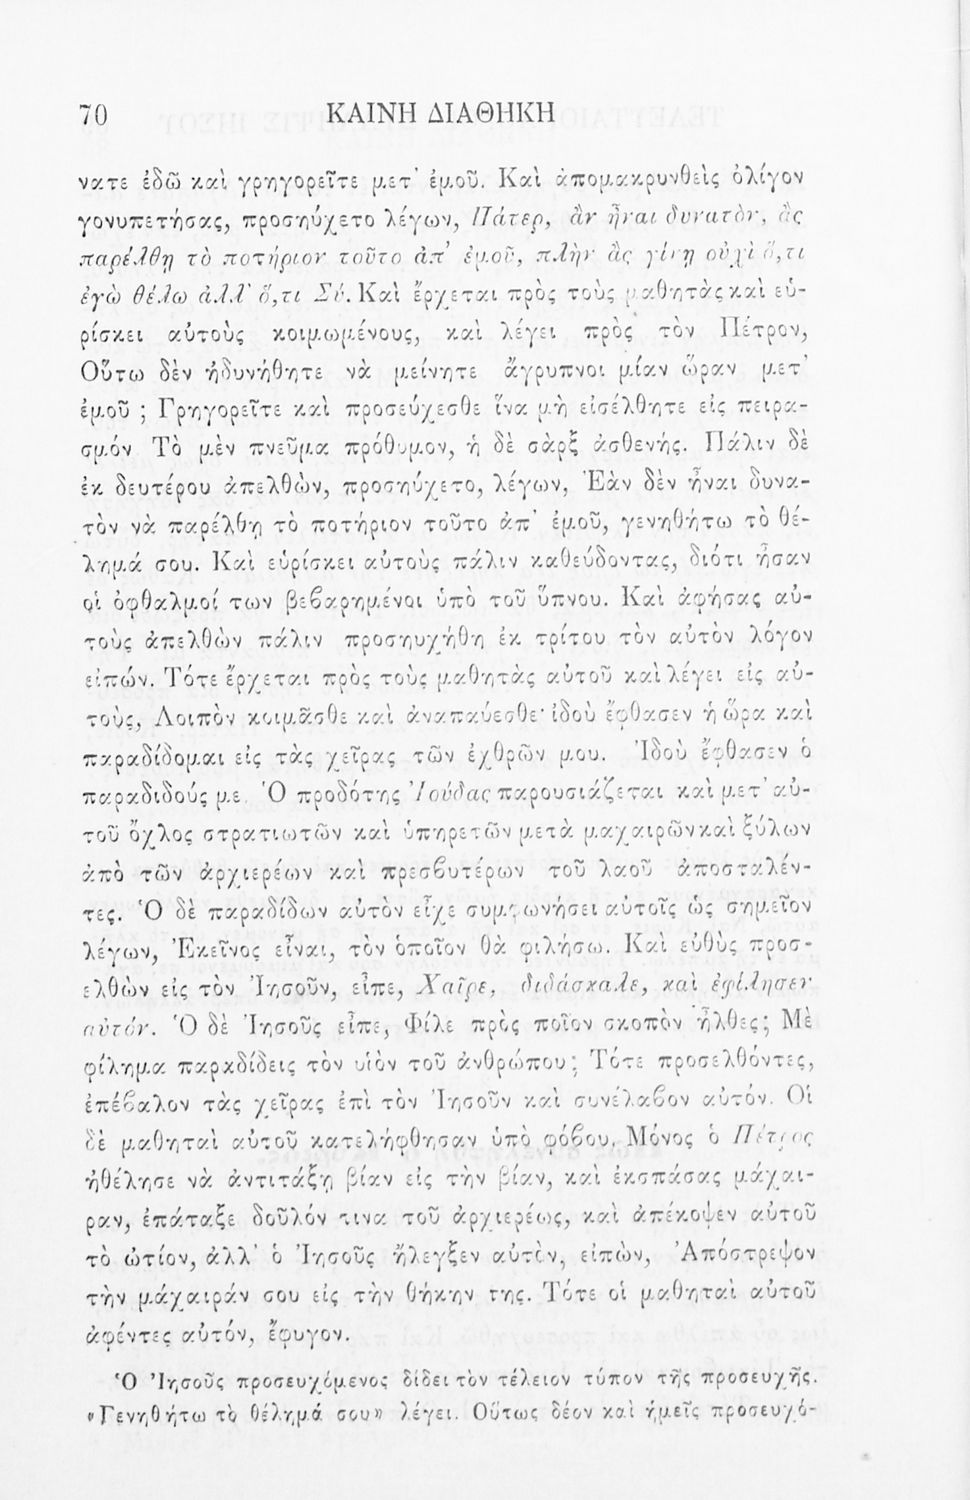 70 ΚΑΙΝΗ ΔΙΑΘΗΚΗ
νατε ἐδῶ καὶ γρηγορεῖτε μετ᾽ ἐμοῦ. Καὶ ἀπομακρυνθεὶς ὀλίγον
γονυπετήσας, προσηύχετο λέγων, Πάτερ, ἂν ἦναι δυνατὸν, ἂς
παρέλθῃ τὸ ποτήριον τοῦτο ἀπ᾽ ἐμοῦ, πλὴν ἂς γίνῃ οὐχὶ ὅ,τι
ἐγὼ θέλω ἀλλ᾽ ὅ,τι Σύ. Καὶ ἔρχεται πρὸς τοὺς μαθητὰς καὶ εὑ-
ρίσκει αὐτοὺς κοιμωμένους, καὶ λέγει πρὸς τὸν Πέτρον,
Οὕτω δὲν ἠδυνήθητε νὰ μείνητε ἄγρυπνοι μίαν ὥραν μετ᾽
ἐμοῦ ; Γρηγορεῖτε καὶ προσεύχεσθε ἵνα μὴ εἰσέλθητε εἰς πειρα-
σμόν Τὸ μὲν πνεῦμα πρόθυμον, ἡ δὲ σὰρξ ἀσθενής. Πάλιν δὲ
ἐκ δευτέρου ἀπελθὼν, προσηύχετο, λέγων, Ἐὰν δὲν ἦναι δυνα-
τὸν νὰ παρέλθῃ τὸ ποτήριον τοῦτο ἀπ᾽ ἐμοῦ, γενηθήτω τὸ θέ-
λημά σου. Καὶ εὑρίσκει αὐτοὺς πάλιν καθεύδοντας, διότι ἦσαν
οἱ ὀφθαλμοί των βεβαρημένοι ὑπὸ τοῦ ὕπνου. Καὶ ἀφήσας αὐ-
τοὺς ἀπελθὼν πάλιν προσηυχήθη ἐκ τρίτου τὸν αὐτὸν λόγον
εἰπών. Τότε ἔρχεται πρὸς τοὺς μαθητὰς αὐτοῦ καὶ λέγει εἰς αὐ-
τοὺς, Λοιπὸν κοιμᾶσθε καὶ ἀναπαύεσθε· ἰδοὺ ἔφθασεν ἡ ὥρα καὶ
παραδίδομαι εἰς τὰς χεῖρας τῶν ἐχθρῶν μου. Ἰδοὺ ἔφθασεν ὁ
παραδιδούς με. Ὁ προδότης Ἰούδας παρουσιάζεται καὶ μετ᾽ αὐ-
τοῦ ὄχλος στρατιωτῶν καὶ ὑπηρετῶν μετὰ μαχαιρῶν καὶ ξύλων
ἀπὸ τῶν ἀρχιερέων καὶ πρεσβυτέρων τοῦ λαοῦ ἀποσταλέν-
τες. Ὁ δὲ παραδίδων αὐτὸν εἶχε συμφωνήσει αὐτοῖς ὡς σημεῖον
λέγων, Ἐκεῖνος εἶναι, τὸν ὁποῖον θὰ φιλήσω. Καὶ εὐθὺς προσ-
ελθὼν εἰς τὸν Ἰησοῦν, εἶπε, Χαῖρε, διδάσκαλε, καὶ ἐφίλησεν
αὐτόν. Ὁ δὲ Ἰησοῦς εἶπε, Φίλε πρὸς ποῖον σκοπὸν ἦλθες; Μὲ
φίλημα παραδίδεις τὸν υἱὸν τοῦ ἀνθρώπου; Τότε προσελθόντες,
ἐπέβαλον τὰς χεῖρας ἐπὶ τὸν Ἰησοῦν καὶ συνέλαβον αὐτόν. Οἱ
δὲ μαθηταὶ αὐτοῦ κατελήφθησαν ὑπὸ φόβου. Μόνος ὁ Πέτρος
ἠθέλησε νὰ ἀντιτάξῃ βίαν εἰς τὴν βίαν, καὶ ἐκσπάσας μάχαι-
ραν, ἐπάταξε δοῦλόν τινα τοῦ ἀρχιερέως, καὶ ἀπέκοψεν αὐτοῦ
τὸ ὠτίον, ἀλλ᾽ ὁ Ἰησοῦς ἤλεγξεν αὐτὸν, εἰπὼν, Ἀπόστρεψον
τὴν μάχαιράν σου εἰς τὴν θήκην της. Τότε οἱ μαθηταὶ αὐτοῦ
ἀφέντες αὐτόν, ἔφυγον.
Ὁ Ἰησοῦς προσευχόμενος δίδει τὸν τέλειον τύπον τῆς προσευχῆς.
«Γενηθήτω τὸ θέλημά σου» λέγει. Οὕτως δέον καὶ ἡμεῖς προσευχό-